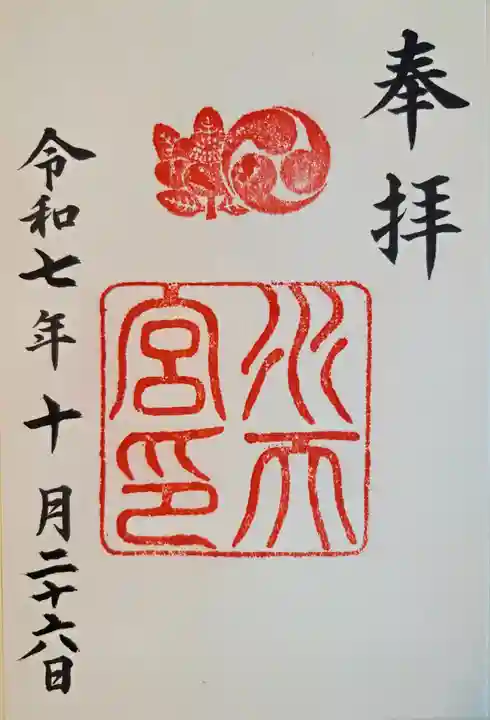 奉拝
水天
宮印
令和七年十月二十六日